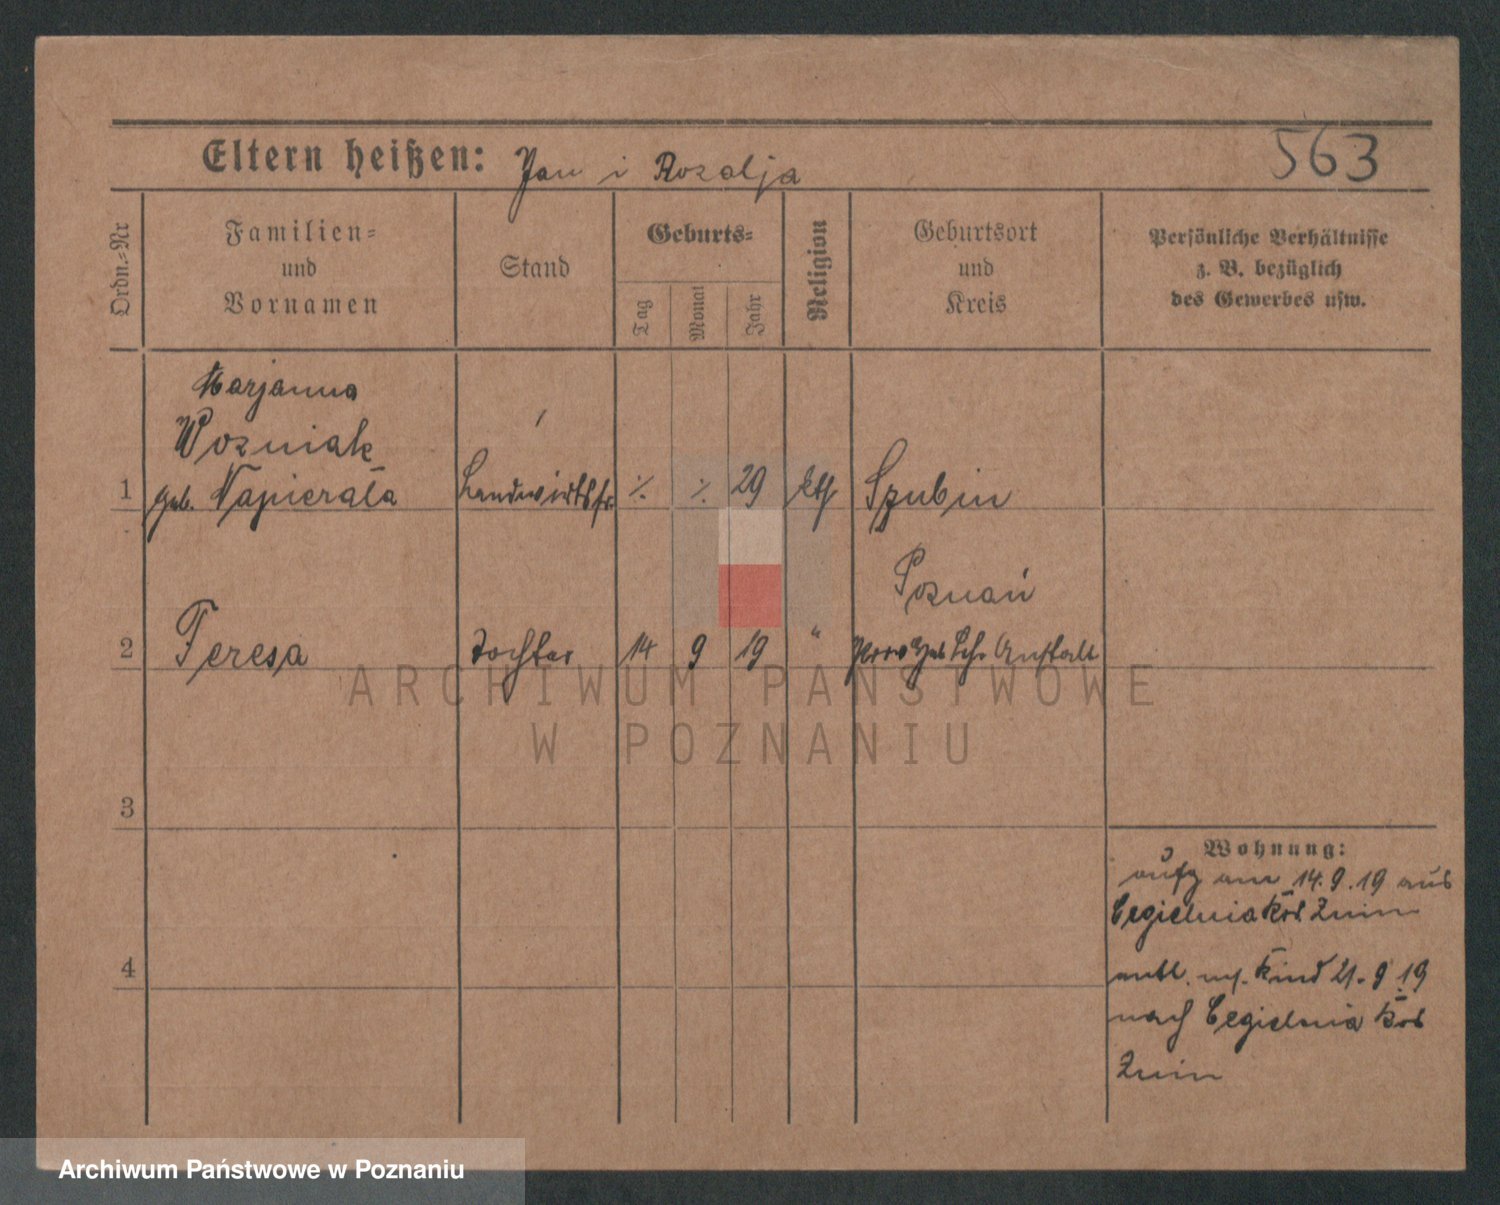 563
Eltern heißen: Jan i Rozalja
Ordn.-Nr
Familien-
und
Vornamen
Stand
Geburts-
Tag
Monat
Jahr
Religion
Geburtsort
und
Kreis
Persönliche Verhältnisse
z. B. bezüglich
des Gewerbes usw.
Marjanna
Wozniak
1 geb. Napierała Landwirtsfr. ·/. ·/. 29 kth Szubin
Poznań
2 Teresa Tochter 14 9 19 " Prov Heb Lehr Anstalt
3
4
Wohnung:
aufg am 14.9.19 aus
Cegielnia Krs Znin
entl. m. Kind 21.9.19
nach Cegielnia Krs
Znin
ARCHIWUM PAŃSTWOWE
W POZNANIU
Archiwum Państwowe w Poznaniu